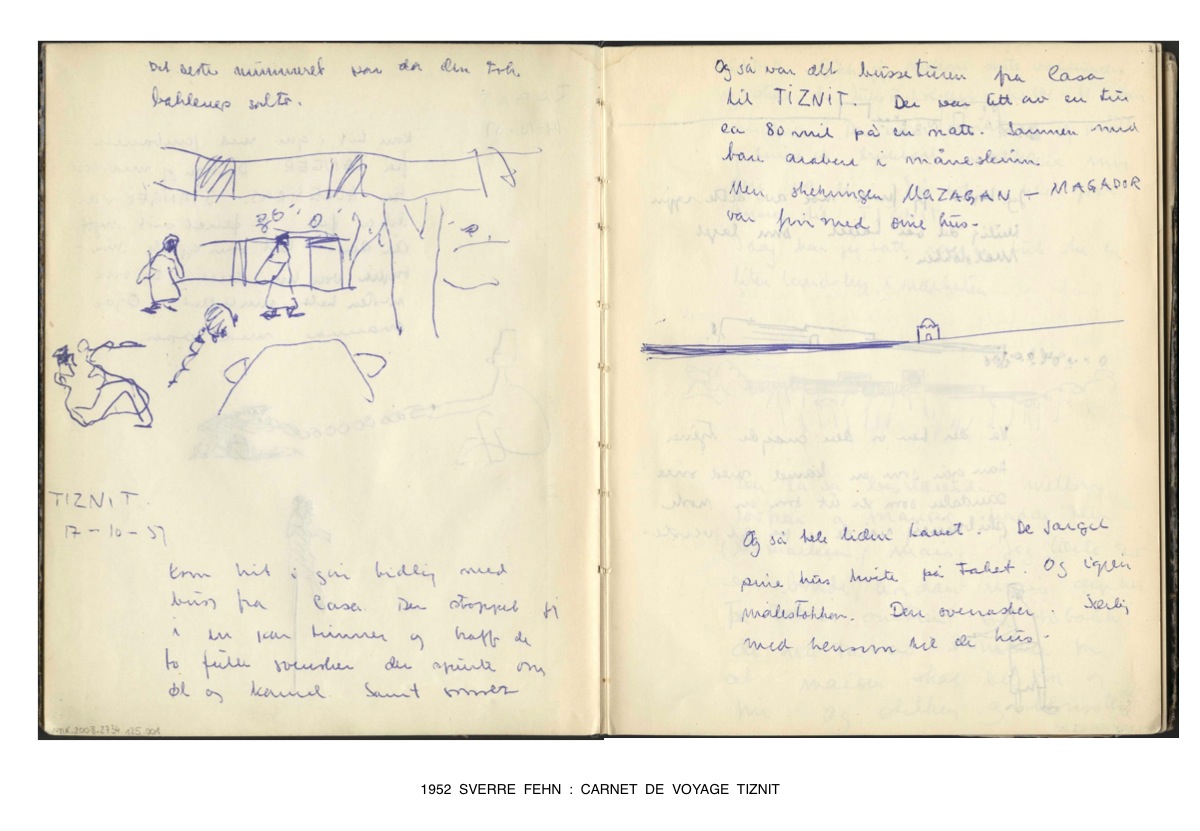 Det beste nummeret var da den
sølte.
TIZNIT.
17-10-51
Kom hit i går tidlig med
buss fra Casa. Den stoppet
i en kan timer og traff de
to fulle svensker der spurte om
øl og kamel. Samt
Og så var det bussturen fra Casa
til TIZNIT. Den var litt av en tur
ca 80 mil på en natt. Sammen med
bare arabere i måneskinn.
Men strekningen MAZAGAN - MAGADOR
var fin med sine hus.
Og så hele tiden havet. De
sine hus hvite på taket. Og igjen
målestokken. Den overrasker. Særlig
med hensyn til de hus.
125.001
1952 SVERRE FEHN : CARNET DE VOYAGE TIZNIT